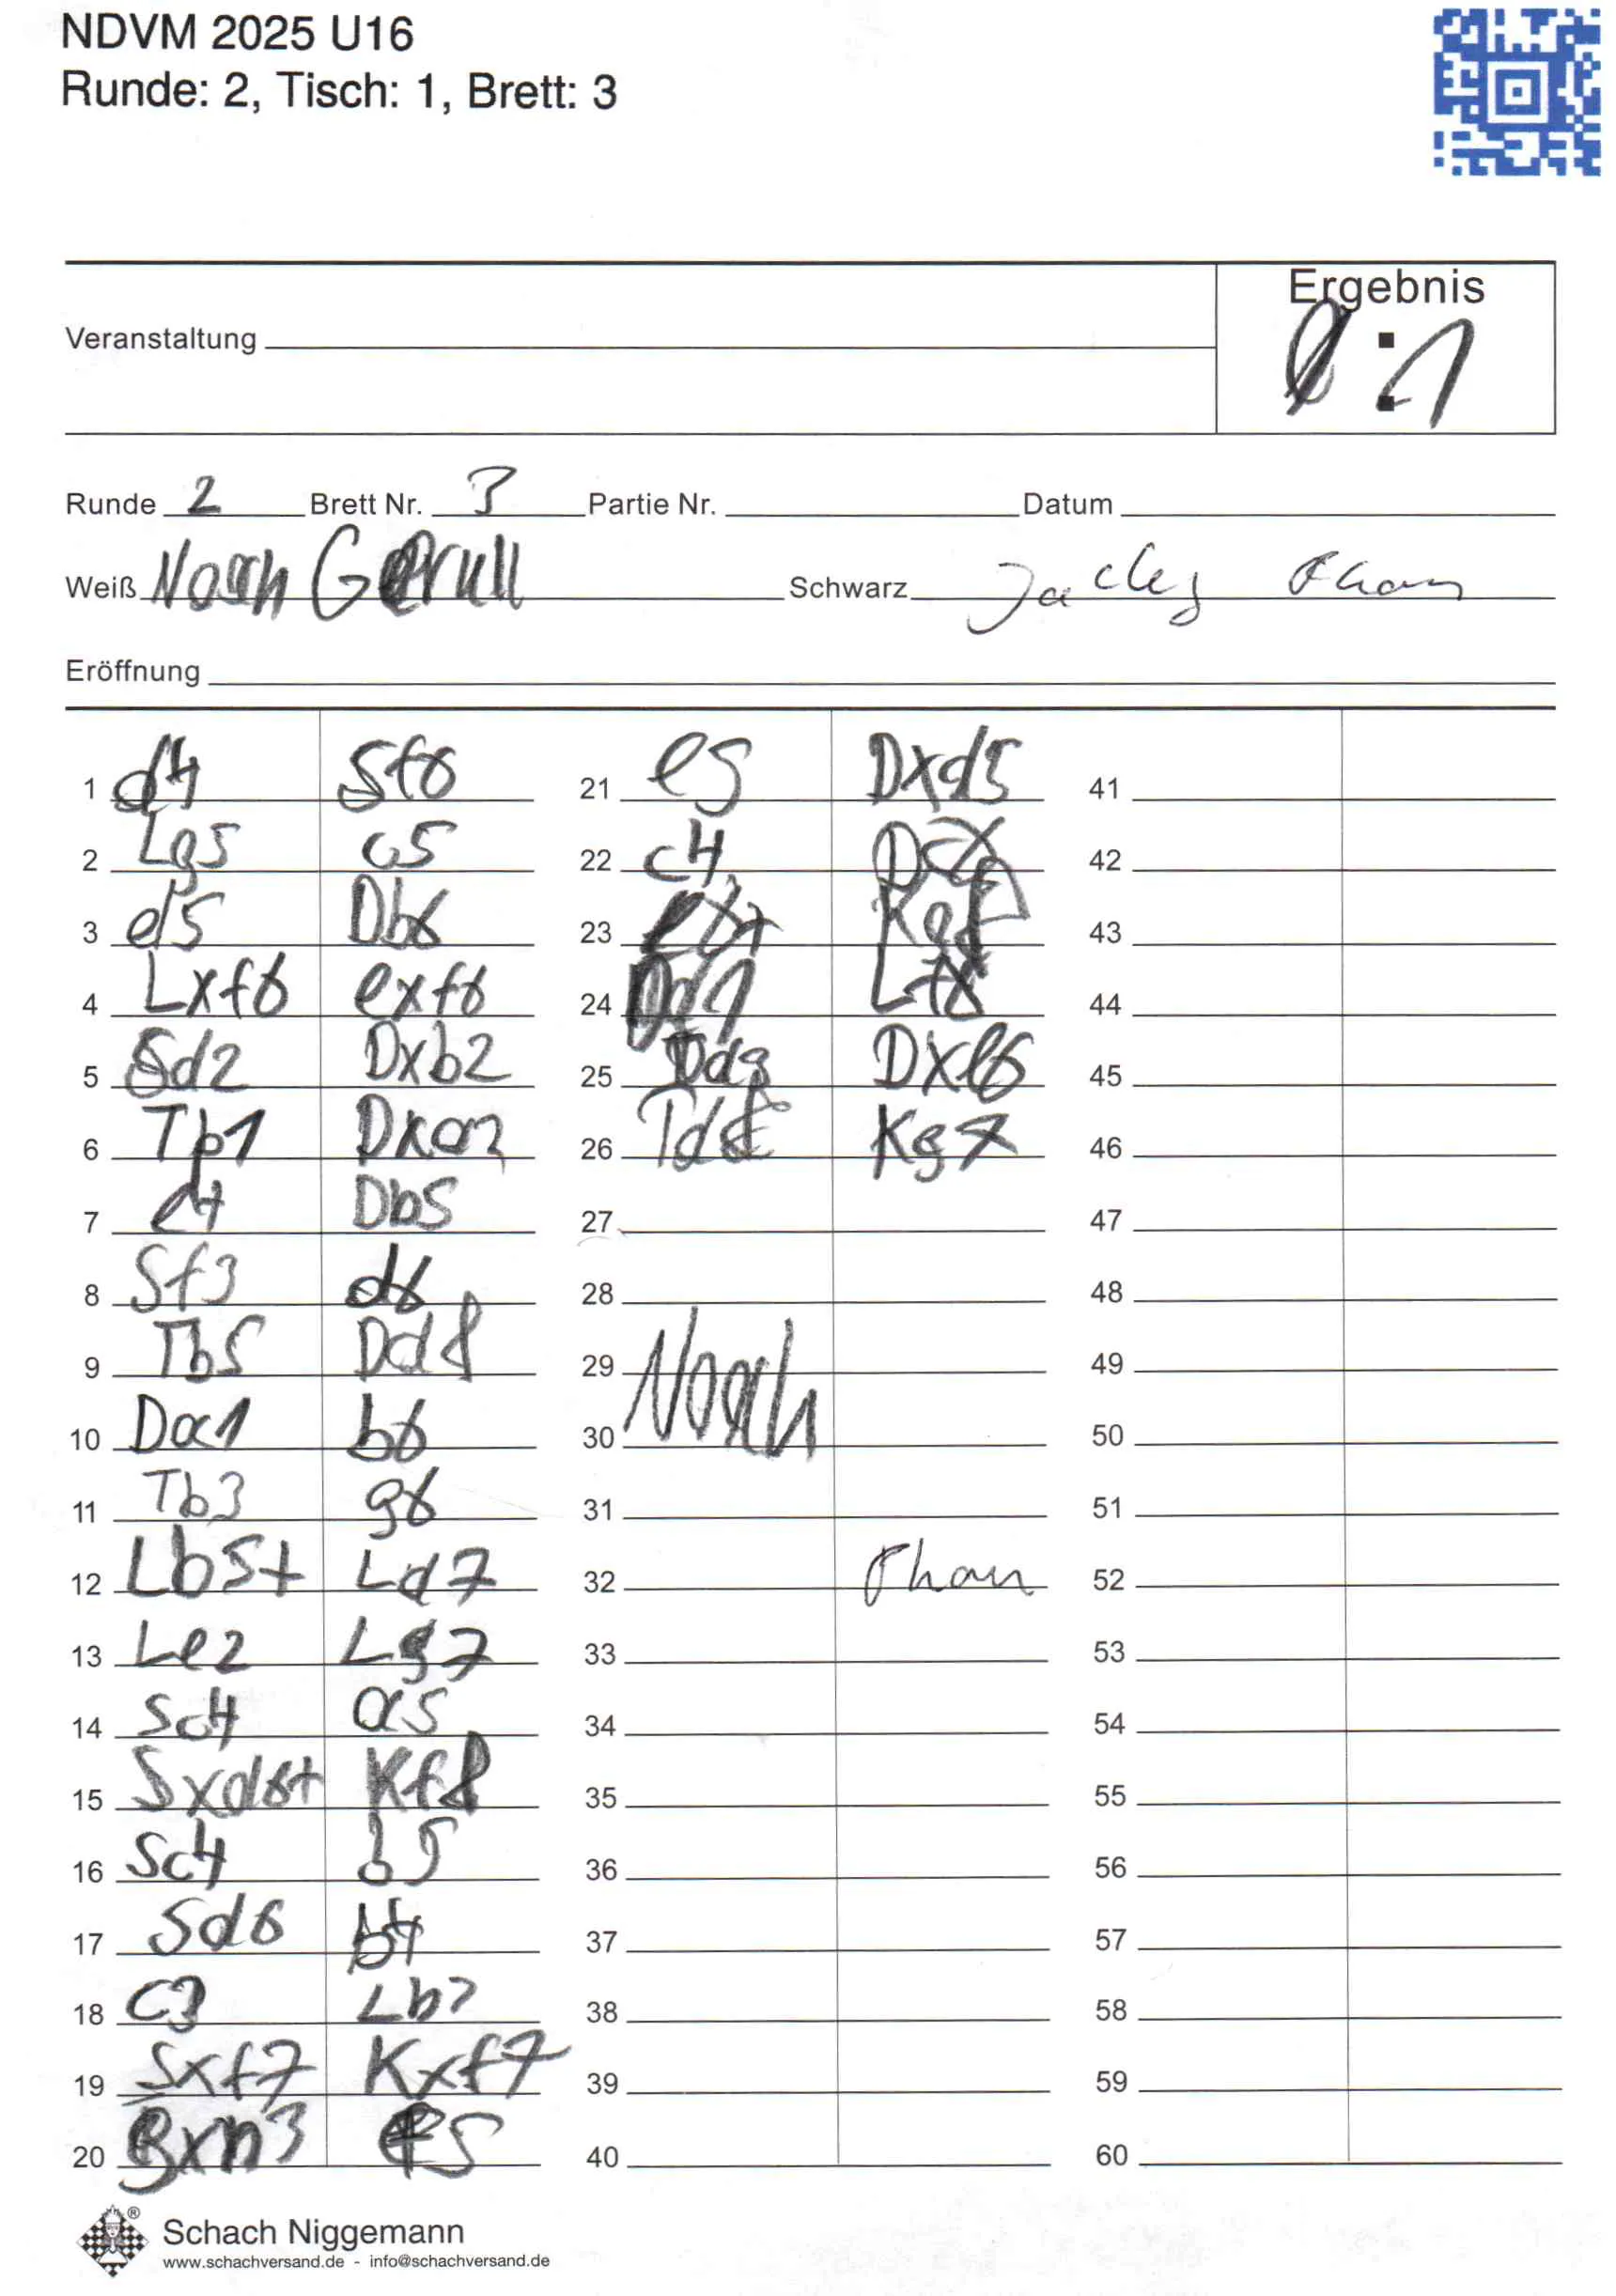 NDVM 2025 U16
Runde: 2, Tisch: 1, Brett: 3
Ergebnis
Veranstaltung
0 : 1
Runde 2 Brett Nr. 3 Partie Nr. Datum
Weiß Noah Schwarz Jacky Phan
Eröffnung
1 d4 Sf6 21 e5 Dxd5 41
2 Lg5 c5 22 c4 42
3 d5 Db6 23 43
4 Lxf6 exf6 24 Dd1 Lf8 44
5 Sd2 Dxb2 25 Dd3 Dxe6 45
6 Tb1 Dxa2 26 Td8 Kg7 46
7 e4 Db5 27 47
8 Sf3 d6 28 48
9 Tb5 Dd8 29 Noah 49
10 Da1 b6 30 50
11 Tb3 g6 31 51
12 Lb5+ Ld7 32 Phan 52
13 Le2 Lg7 33 53
14 Sc4 a5 34 54
15 Sxd6+ Kf8 35 55
16 Sc4 b5 36 56
17 Sd6 b4 37 57
18 c3 Lb7 38 58
19 Sxf7 Kxf7 39 59
20 f5 40 60
Schach Niggemann
www.schachversand.de - info@schachversand.de